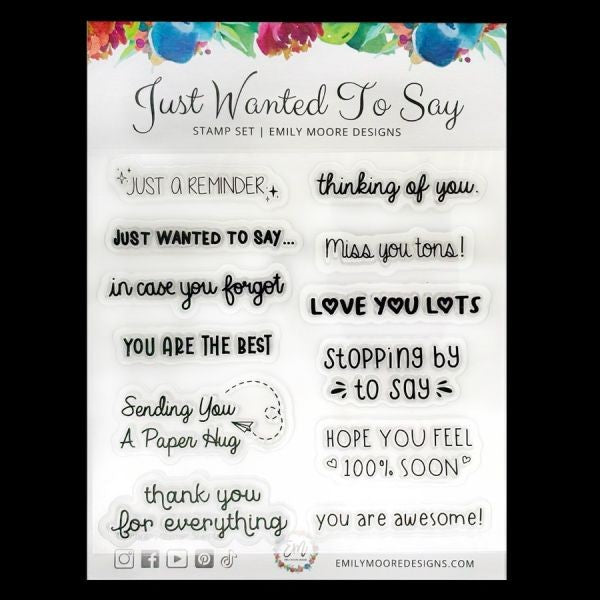 Just Wanted To Say
STAMP SET | EMILY MOORE DESIGNS
JUST A REMINDER
JUST WANTED TO SAY...
in case you forgot
YOU ARE THE BEST
Sending You
A Paper Hug
thank you
for everything
thinking of you.
Miss you tons!
LOVE YOU LOTS
Stopping by
to say
HOPE YOU FEEL
100% SOON
you are awesome!
EM
EMILYMOOREDESIGNS.COM